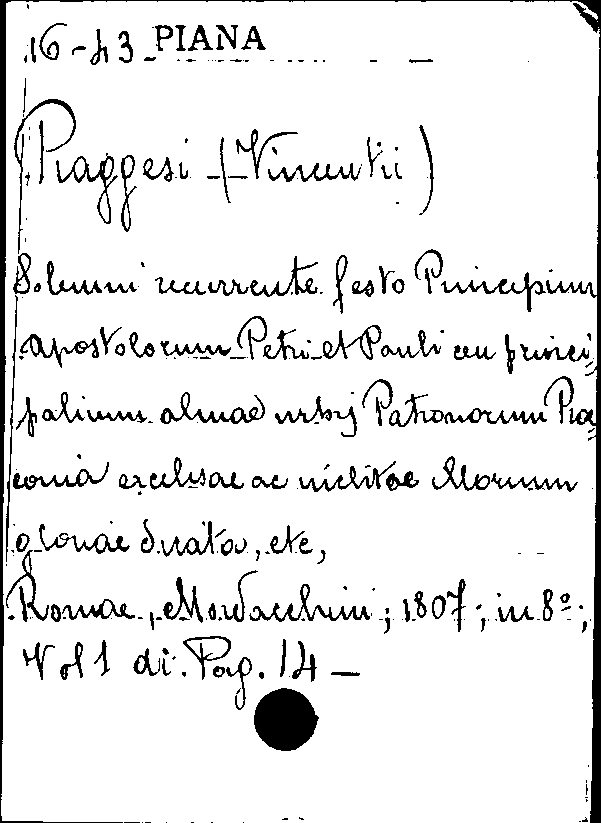 16-43 PIANA
Piaggesi (Vincentii)
Solemni recurrente festo Principum
Apostolorum Petri et Pauli ceu princi=
palium almae urbis Patronorum Prae=
conia excelsae ac inclitae illorum
gloriae dicata, etc,
Romae, Mordacchini; 1807; in 8º;
Vol 1 di Pag. 14 –